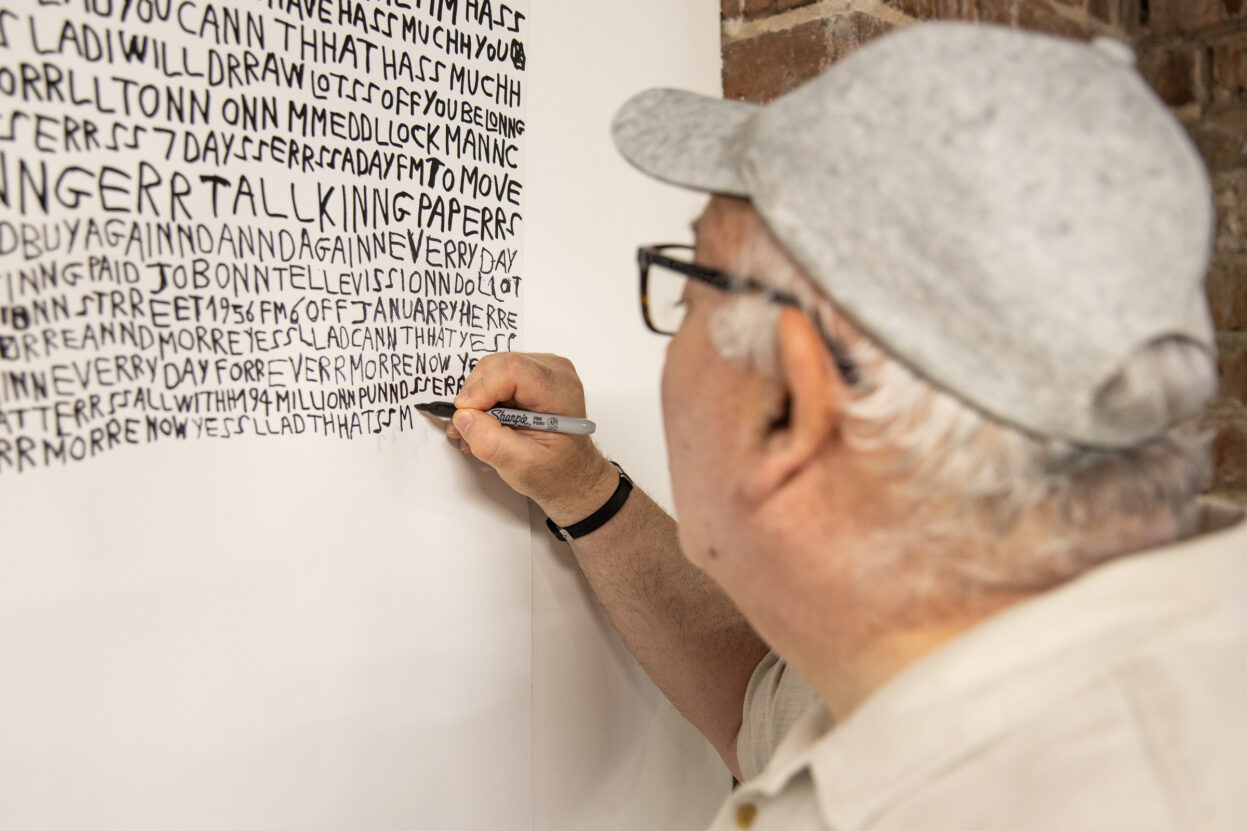 YOUCANNTHHATHASSMUCHH
HAVEHASSMUCHHYOU
LADIWILLDRRAWLOTSSOFFYOUBELONNG
ORRLLTONNONNMMEDDLLOCKMANNC
SERRSS7DAYSSERRSSADAYFMTOMOVE
NNGERRTALLKINNGPAPERRS
DBUYAGAINNDANNDAGAINNEVERRYDAY
INNGPAIDJOBONNTELLEVISSIONNDOLLOT
NNSTRREET1956FM6OFFJANUARRYHERRE
RREANNDMORREYESSLLADCANNTHHATYESS
INNEVERRYDAYFORREVERRMORRENOWYE
ATTERRSSALLWITHH194MILLIONNPUNNDSSERR
RRMORRENOWYESSLLADTHHATSSM
Sharpie FINE POINT